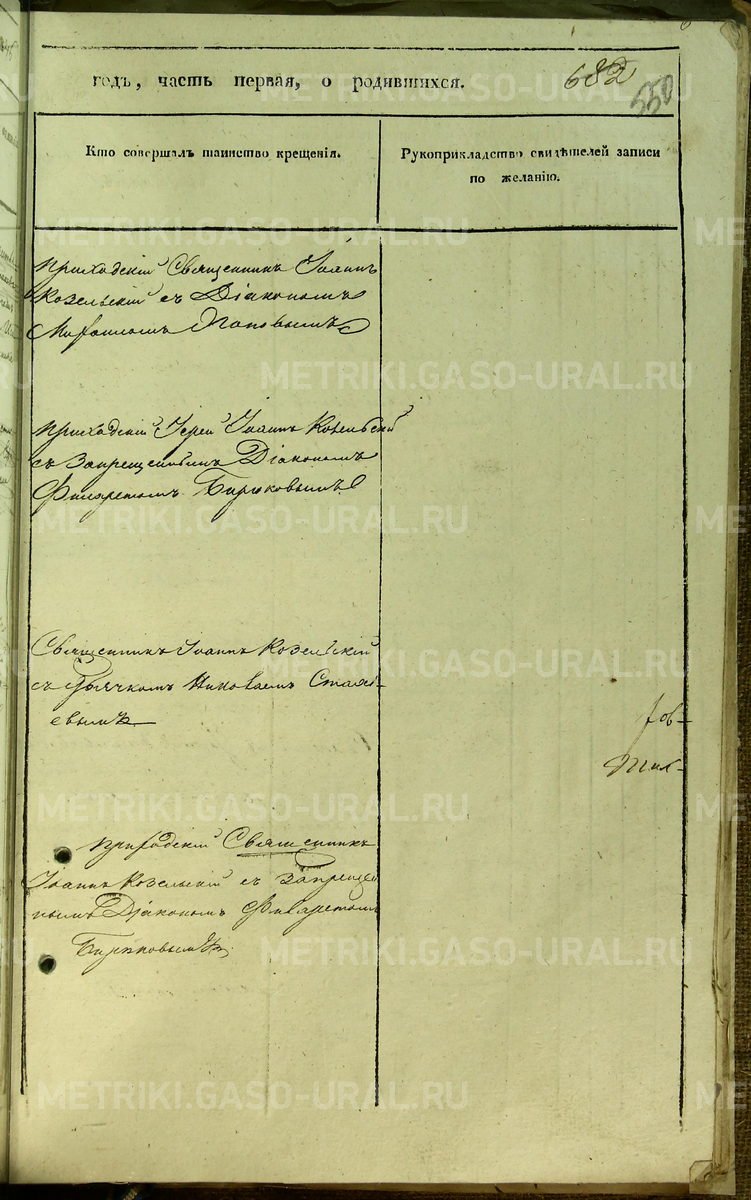 годъ, часть первая, о родившихся.
682
550
Кто совершалъ таинство крещенія.
Рукоприкладство свидѣтелей записи
по желанію.
приходскій Священникъ Іоаннъ
Козельскій съ Діакономъ
Михаиломъ
приходскій Іерей Іоаннъ Козельскій
съ Запрещеннымъ Діакономъ
Филаретомъ Бирюковымъ
Священникъ Іоаннъ Козельскій
съ Дьячкомъ Николаемъ
евымъ
приходскій Священникъ
Іоаннъ Козельскій съ Запрещен
нымъ Діакономъ Филаретомъ
Бирюковымъ
METRIKI.GASO-URAL.RU